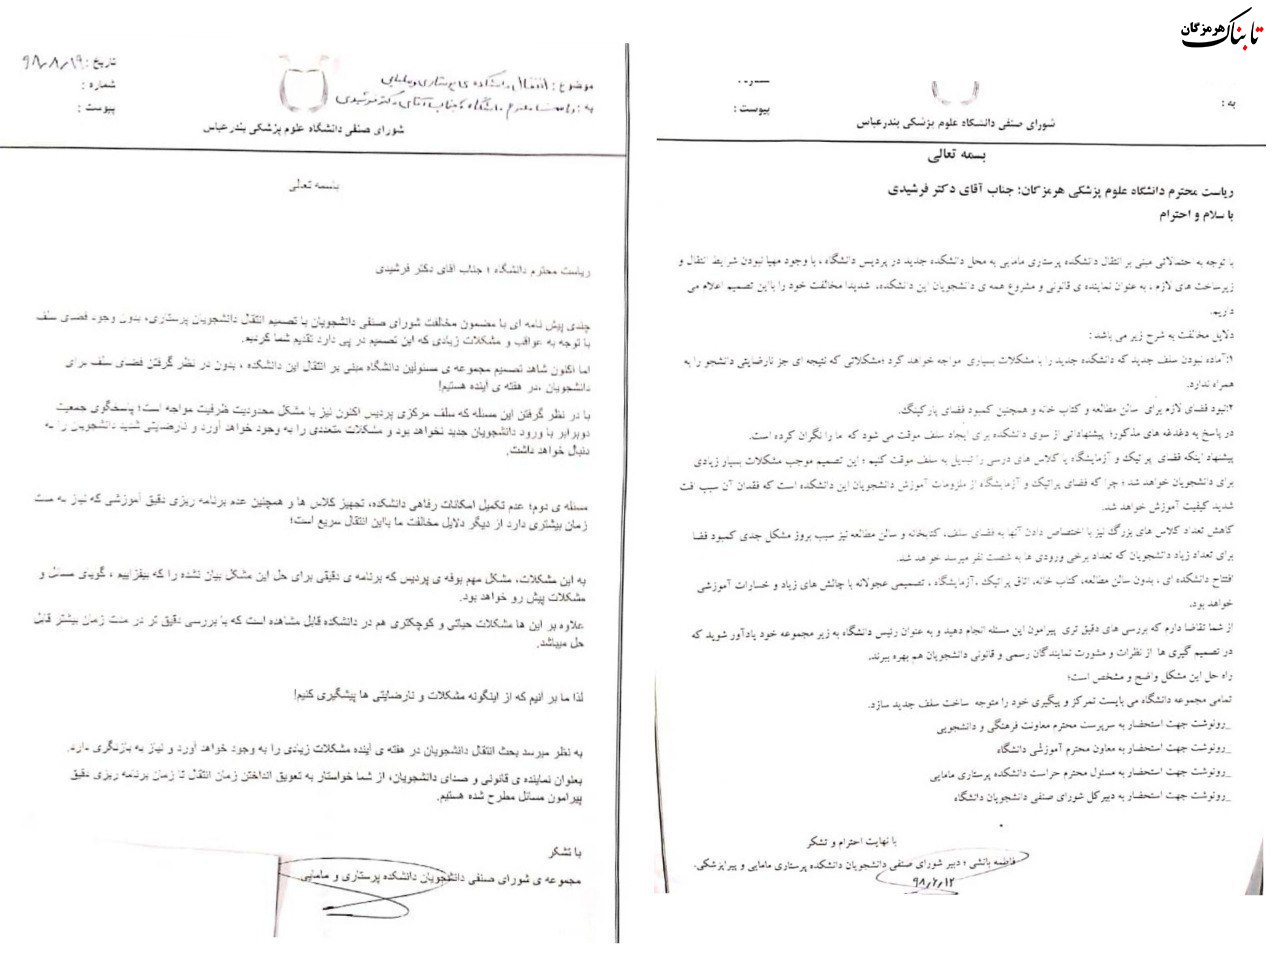 تابناک هرمزگان
به :
شماره :
پیوست :
شورای صنفی دانشگاه علوم پزشکی بندرعباس
بسمه تعالی
ریاست محترم دانشگاه علوم پزشکی هرمزگان: جناب آقای دکتر فرشیدی
با سلام و احترام
با توجه به حتمالاتی مبنی بر انتقال دانشکده پرستاری مامایی به محل دانشکده جدید در پردیس دانشگاه ، با وجود مهیا نبودن شرایط انتقال و
زیرساخت های لازم ، به عنوان نماینده ی قانونی و مشروع همه ی دانشجویان این دانشکده، شدیدا مخالفت خود را بااین تصمیم اعلام می
داریم.
دلایل مخالفت به شرح زیر می باشد :
۱:آماده نبودن سلف جدید که دانشکده جدید را با مشکلات بسیاری مواجه خواهد کرد ؛مشکلاتی که نتیجه ای جز نارضایتی دانشجو را به
همراه ندارد.
۲:نبود فضای لازم برای سالن مطالعه و کتاب خانه و همچنین کمبود فضای پارکینگ.
در پاسخ به دغدغه های مذکور؛ پیشنهاداتی از سوی دانشکده برای ایجاد سلف موقت می شود که ما را نگران کرده است.
پیشنهاد اینکه فضای پراتیک و آزمایشگاه یا کلاس های درسی را تبدیل به سلف موقت کنیم ؛ این تصمیم موجب مشکلات بسیار زیادی
برای دانشجویان خواهد شد ؛ چرا که فضای پراتیک و آزمایشگاه از ملزومات آموزش دانشجویان این دانشکده است که فقدان آن سبب افت
شدید کیفیت آموزش خواهد شد.
کاهش تعداد کلاس های بزرگ نیز با اختصاص دادن آنها به فضای سلف، کتابخانه و سالن مطالعه نیز سبب بروز مشکل جدی کمبود فضا
برای تعداد زیاد دانشجویان که تعداد برخی ورودی ها به شصت نفر میرسد خواهد شد.
افتتاح دانشکده ای ، بدون سالن مطالعه، کتاب خانه، اتاق پراتیک ،آزمایشگاه ، تصمیمی عجولانه با چالش های زیاد و خسارات آموزشی
خواهد بود.
از شما تقاضا دارم که بررسی های دقیق تری پیرامون این مسئله انجام دهید و به عنوان رئیس دانشگاه به زیر مجموعه خود یادآور شوید که
در تصمیم گیری ها از نظرات و مشورت نمایندگان رسمی و قانونی دانشجویان هم بهره ببرند.
راه حل این مشکل واضح و مشخص است؛
تمامی مجموعه دانشگاه می بایست تمرکز و پیگیری خود را متوجه ساخت سلف جدید سازد.
_رونوشت جهت استحضار به سرپرست محترم معاونت فرهنگی و دانشجویی
_رونوشت جهت استحضار به معاون محترم آموزشی دانشگاه
_رونوشت جهت استحضار به مسئول محترم حراست دانشکده پرستاری مامایی
_رونوشت جهت استحضار به دبیرکل شورای صنفی دانشجویان دانشگاه
با نهایت احترام و تشکر
فاطمه باتشی ؛ دبیر شورای صنفی دانشجویان دانشکده پرستاری مامایی و پیراپزشکی.
۹۸,۲,۱۲
موضوع : انتقال دانشکده ی پرستاری و مامایی
به : ریاست محترم دانشگاه ؛ جناب آقای دکتر فرشیدی
تاریخ : ۹۸,۸,۱۹
شماره :
پیوست :
شورای صنفی دانشگاه علوم پزشکی بندرعباس
باسمه تعالی
ریاست محترم دانشگاه ؛ جناب اقای دکتر فرشیدی
چندی پیش نامه ای با مضمون مخالفت شورای صنفی دانشجویان با تصمیم انتقال دانشجویان پرستاری، بدون وجود فضای سلف
با توجه به عواقب و مشکلات زیادی که این تصمیم در پی دارد تقدیم شما کردیم.
اما اکنون شاهد تصمیم مجموعه ی مسئولین دانشگاه مبنی بر انتقال این دانشکده ، بدون در نظر گرفتن فضای سلف برای
دانشجویان ،در هفته ی آینده هستیم!
با در نظر گرفتن این مسئله که سلف مرکزی پردیس اکنون نیز با مشکل محدودیت ظرفیت مواجه است؛ پاسخگوی جمعیت
دوبرابر با ورود دانشجویان جدید نخواهد بود و مشکلات متعددی را به وجود خواهد آورد و نارضایتی شدید دانشجویان را به
دنبال خواهد داشت.
مسئله ی دوم؛ عدم تکمیل امکانات رفاهی دانشکده، تجهیز کلاس ها و همچنین عدم برنامه ریزی دقیق آموزشی که نیاز به مدت
زمان بیشتری دارد از دیگر دلایل مخالفت ما بااین انتقال سریع است؛
به این مشکلات، مشکل مهم بوفه ی پردیس که برنامه ی دقیقی برای حل این مشکل بیان نشده را که بیفزاییم ، گویای مسائل و
مشکلات پیش رو خواهد بود.
علاوه بر این ها مشکلات حیاتی و کوچکتری هم در دانشکده قابل مشاهده است که با بررسی دقیق تر در مدت زمان بیشتر قابل
حل میباشد.
لذا ما بر آنیم که از اینگونه مشکلات و نارضایتی ها پیشگیری کنیم!
به نظر میرسد بحث انتقال دانشجویان در هفته ی آینده مشکلات زیادی را به وجود خواهد آورد و نیاز به بازنگری دارد.
بعنوان نماینده ی قانونی و صدای دانشجویان، از شما خواستار به تعویق انداختن زمان انتقال تا زمان برنامه ریزی دقیق
پیرامون مسائل مطرح شده هستیم.
با تشکر
مجموعه ی شورای صنفی دانشجویان دانشکده پرستاری و مامایی